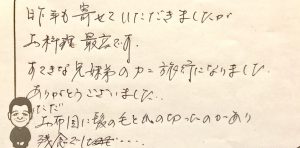 昨年も寄せていただきましたが
お料理最高です。
すてきな兄姉弟の力に旅行になりました。
ありがとうございました。
ただ
お布団に髪の毛と爪の切ったのがあり
残念でした……